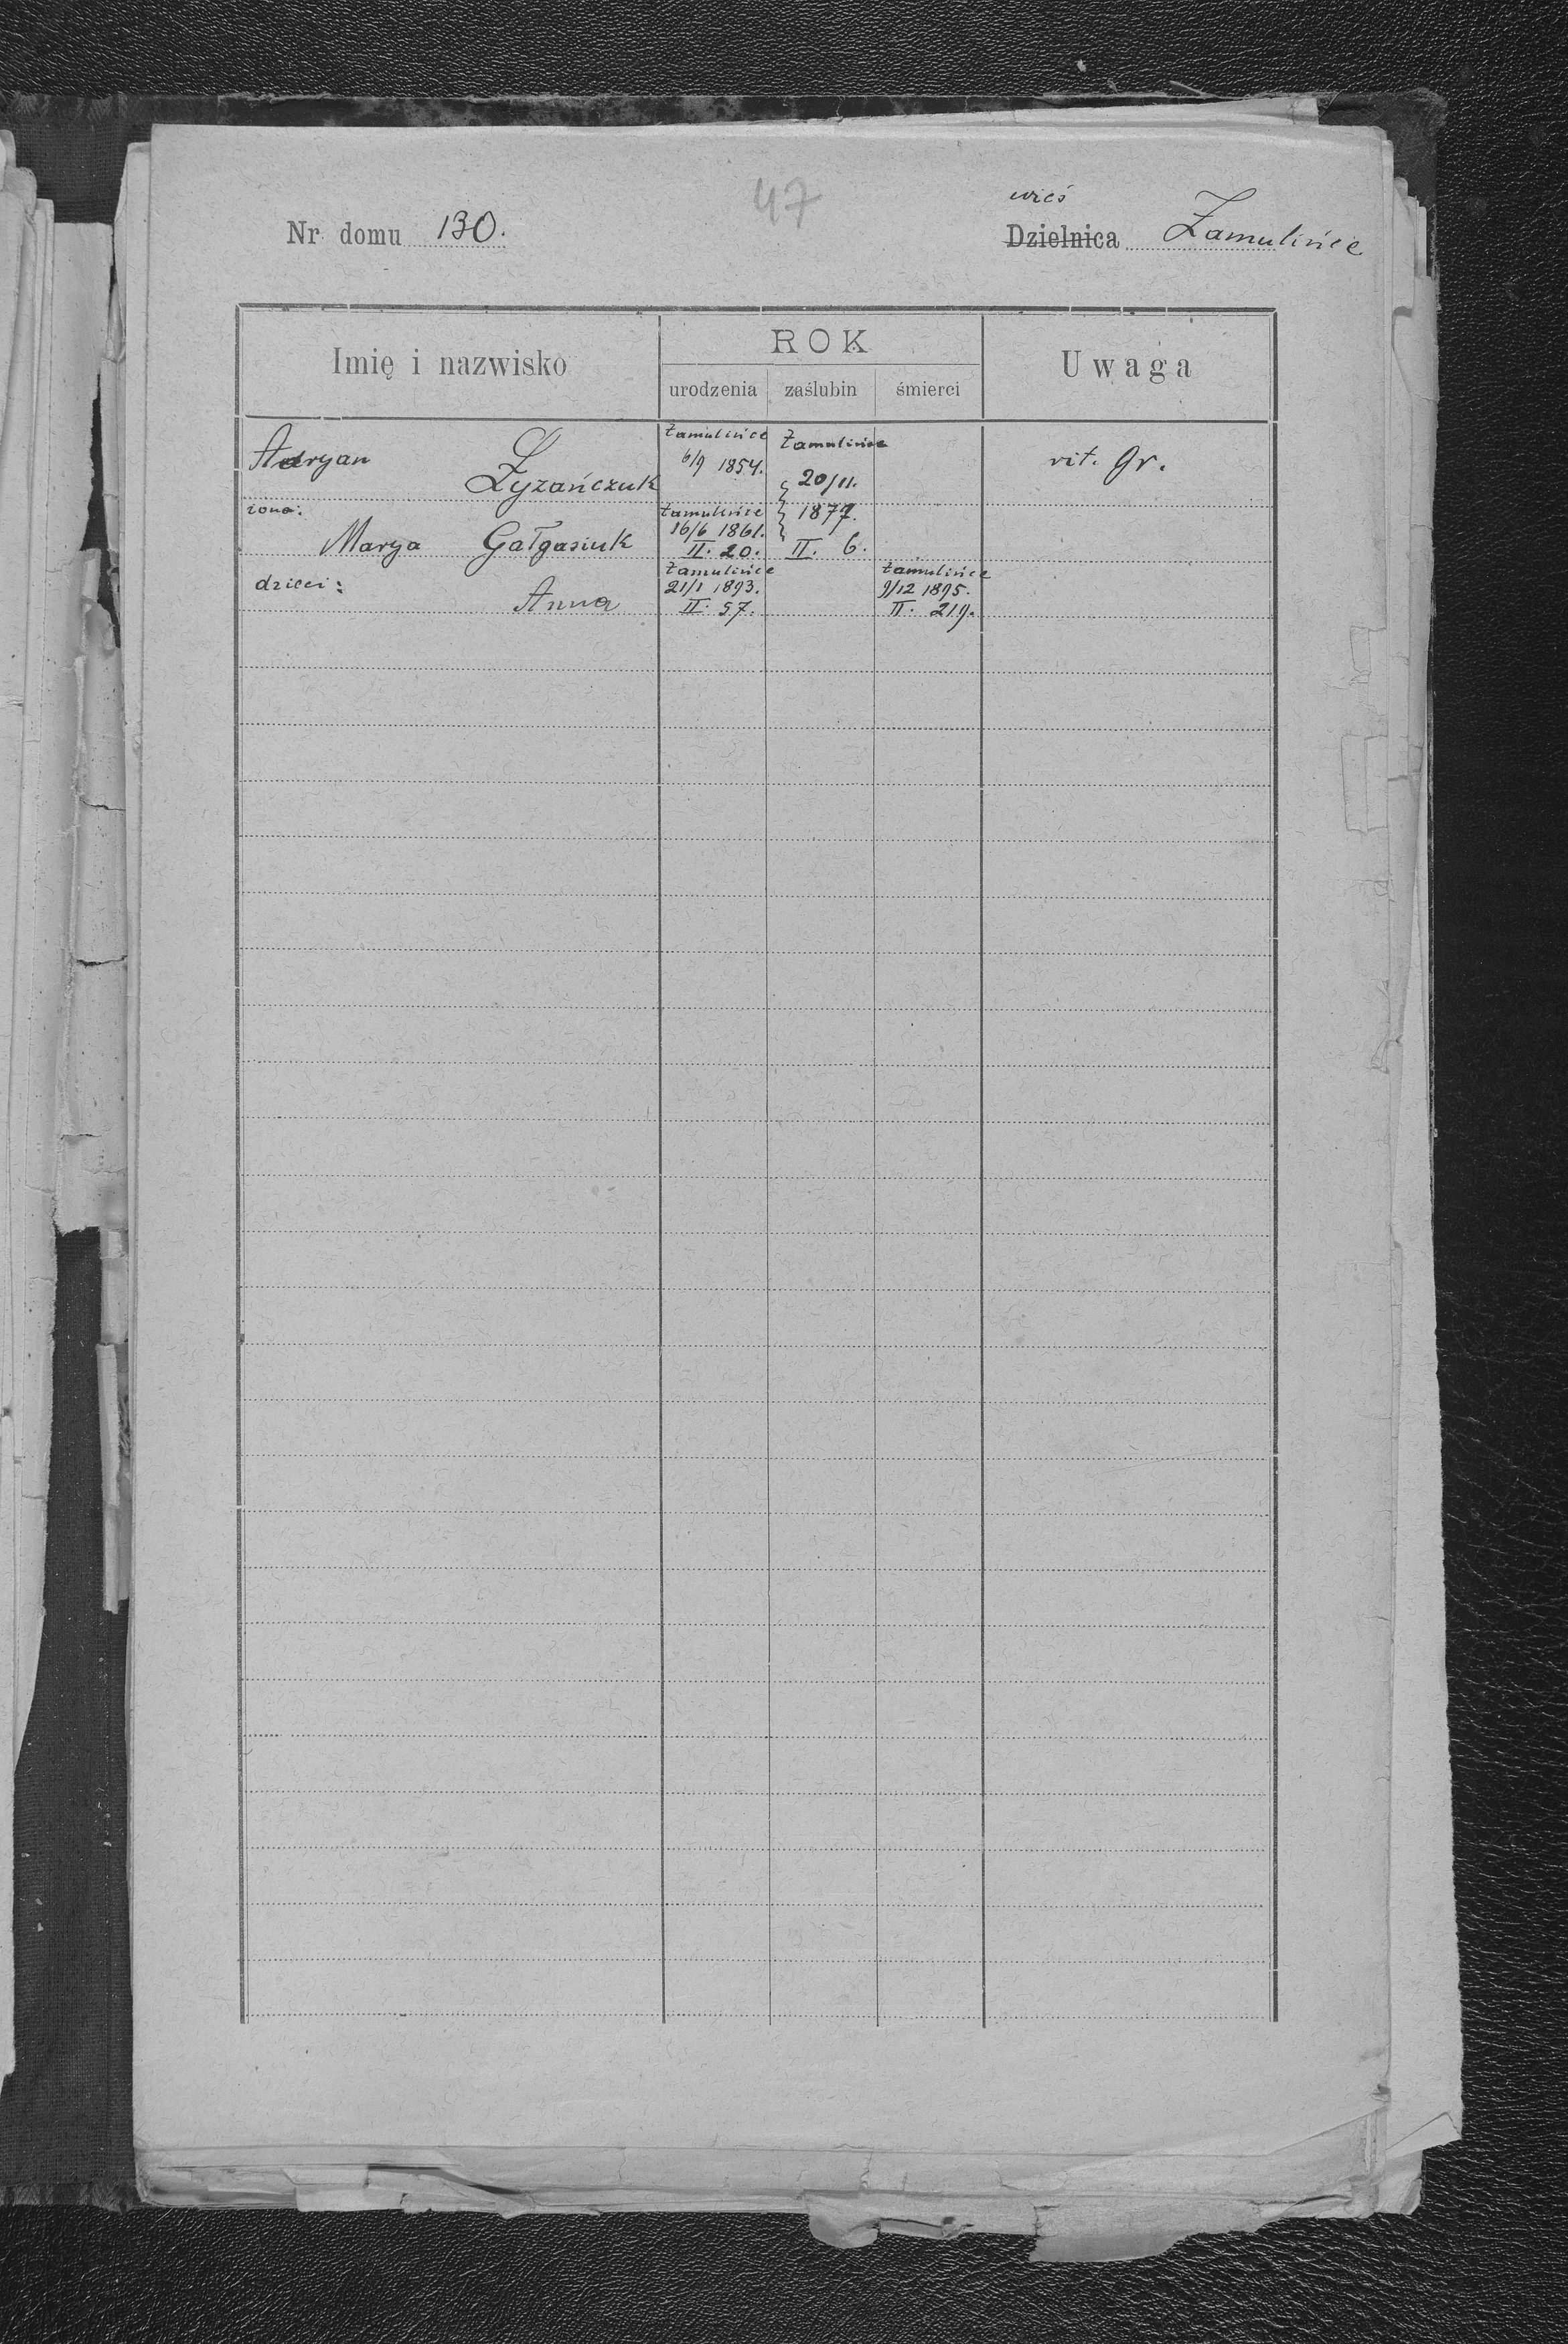 47
wieś
Nr domu 130. Dzielnica Zamulińce
Imię i nazwisko ROK Uwaga
urodzenia zaślubin śmierci
Adryan Zamulińce Zamulińce
6/9 1854. rit. gr.
Zyzańczuk 20/11.
żona: Zamulińce 1877.
Marya Gałgasiuk 16/6 1861.
II. 20. II. 6.
dzieci: Zamulińce Zamulińce
21/1 1893. 9/12 1895.
Anna II. 57. II. 219.